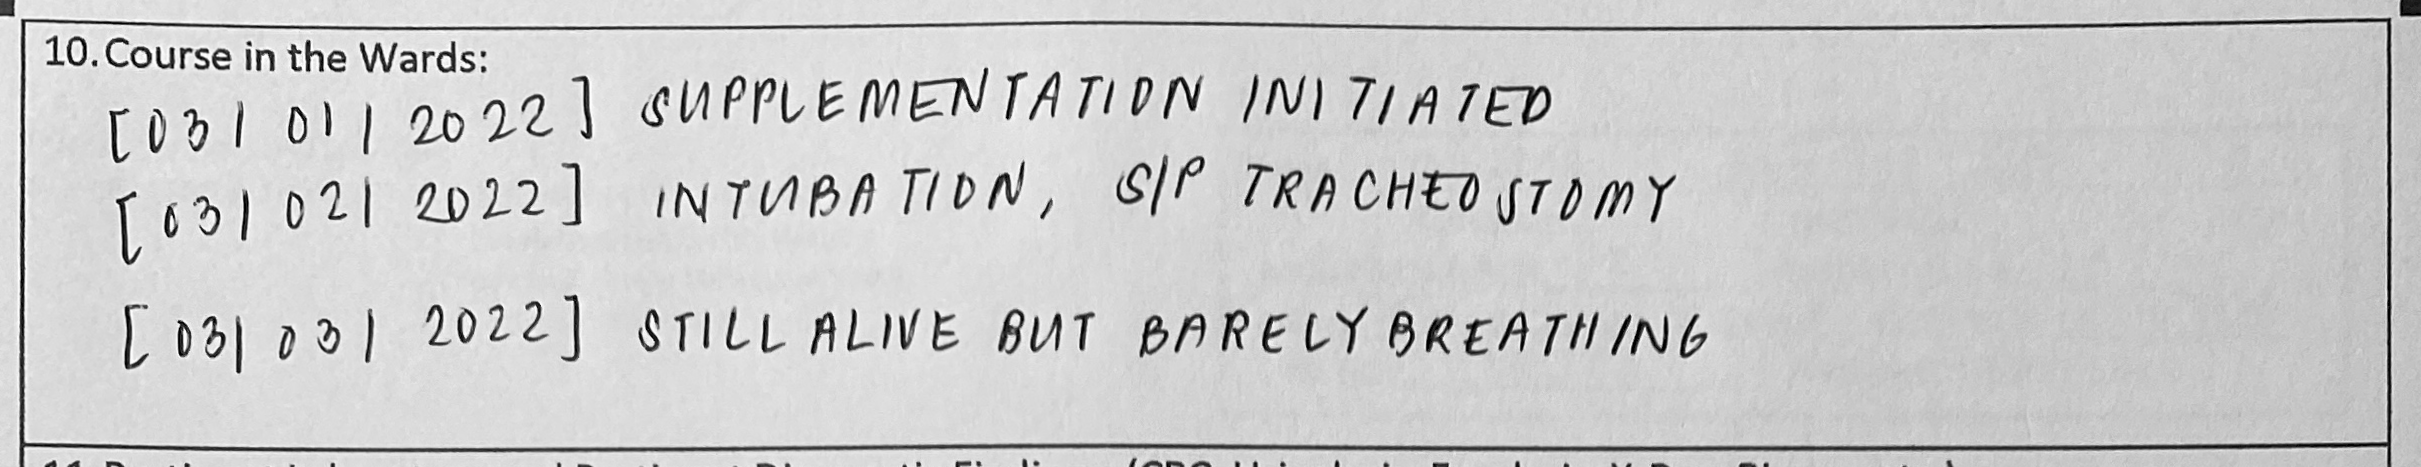 10. Course in the Wards:
[03/01/2022] SUPPLEMENTATION INITIATED
[03/02/2022] INTUBATION, S/P TRACHEOSTOMY
[03/03/2022] STILL ALIVE BUT BARELY BREATHING